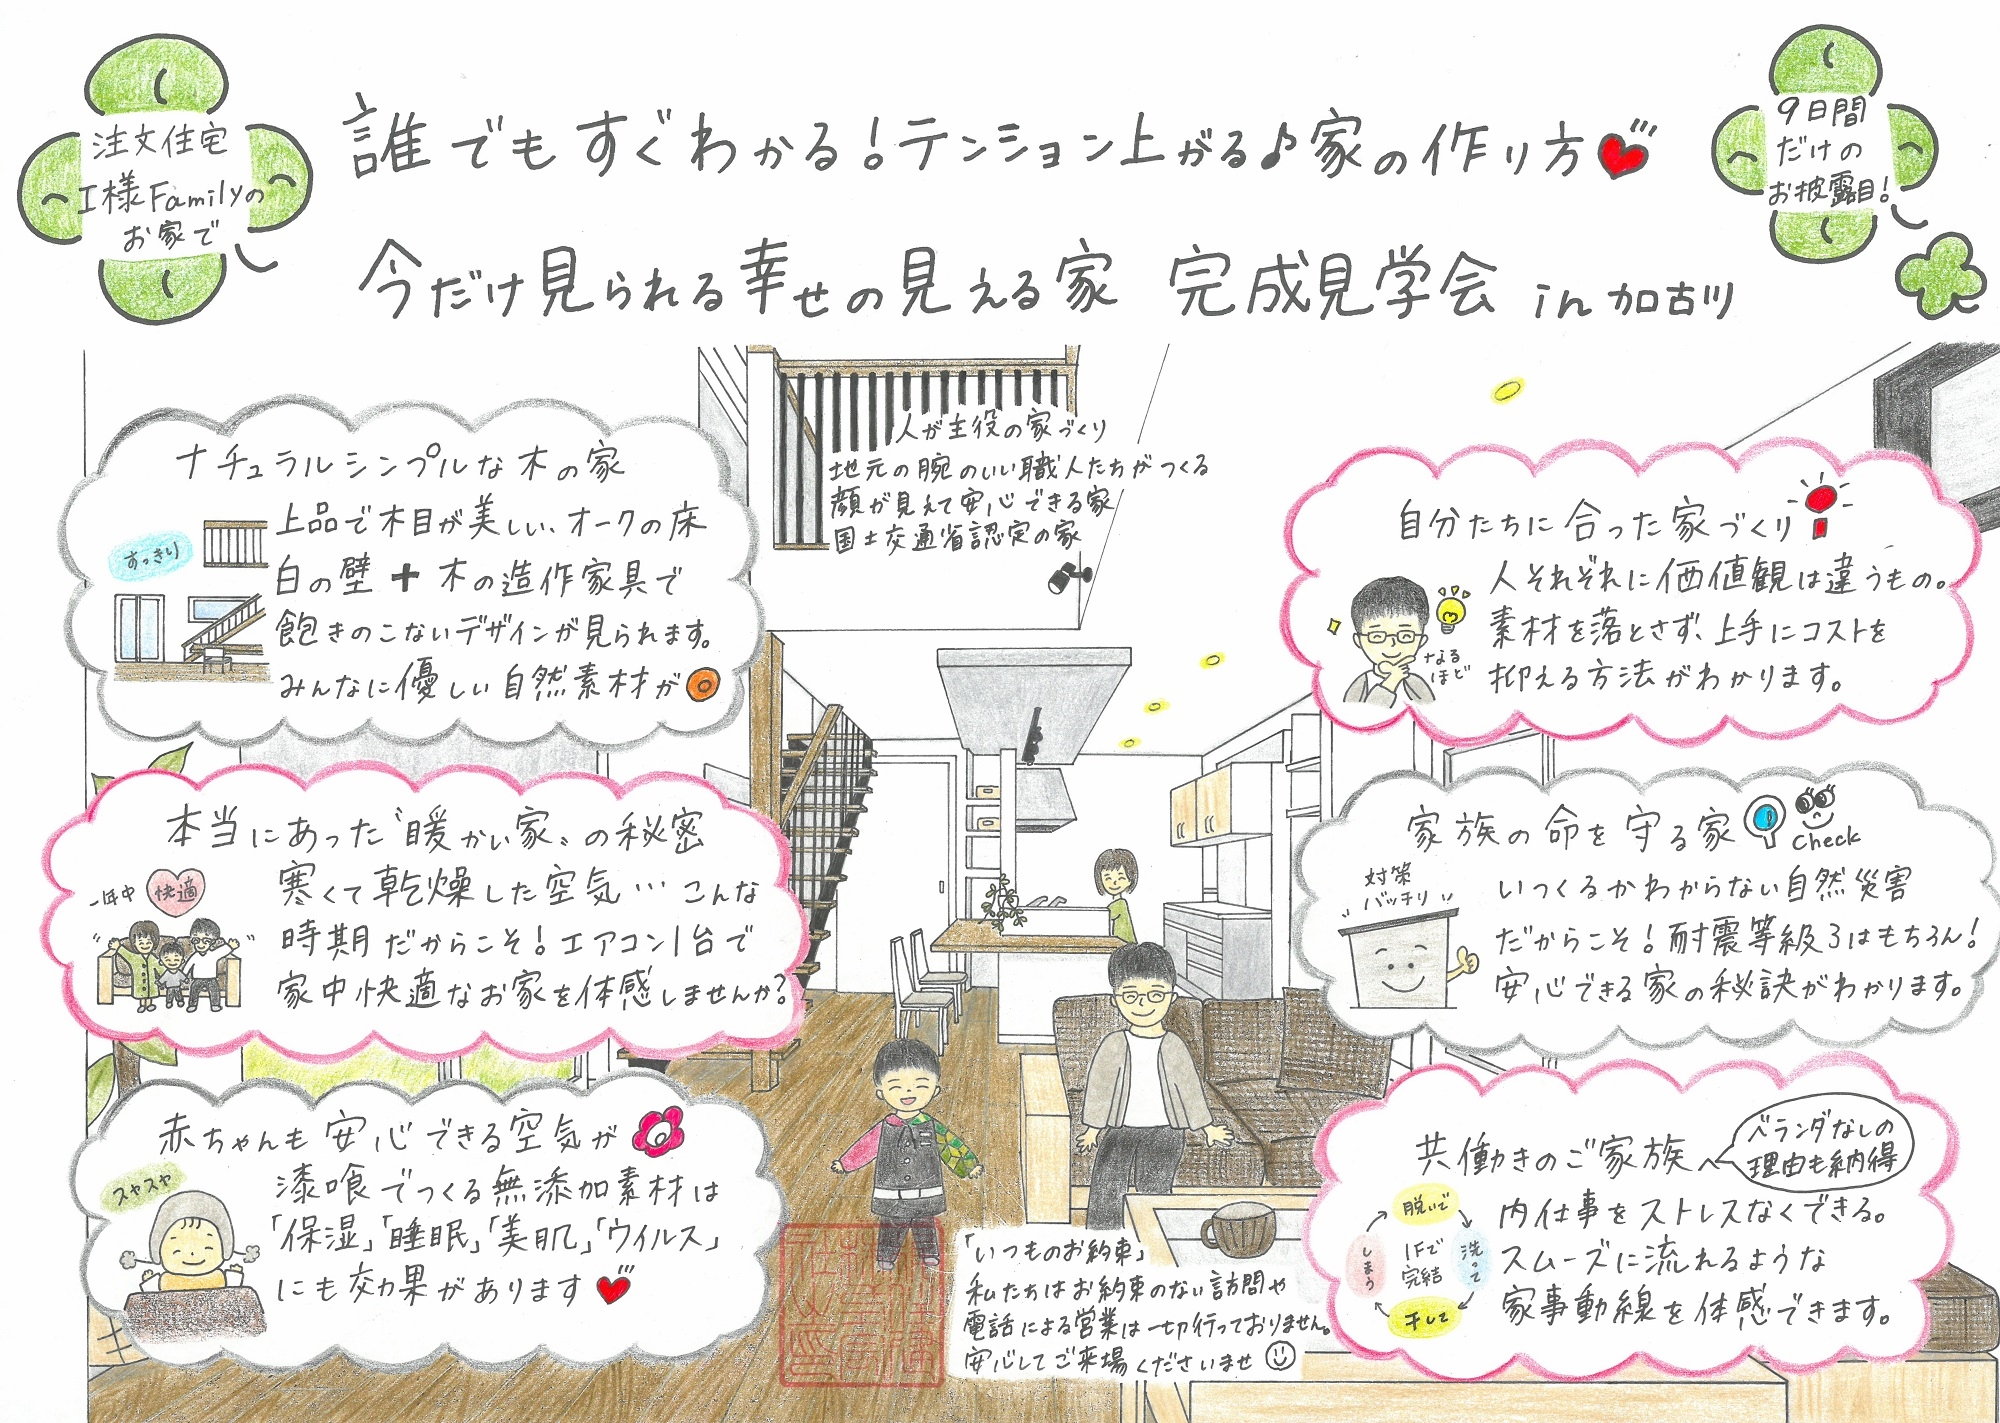 注文住宅
I様Familyの
お家で
誰でもすぐわかる！テンション上がる♪家の作り方
9日間
だけの
お披露目！
今だけ見られる幸せの見える家 完成見学会 in 加古川
人が主役の家づくり
地元の腕のいい職人たちがつくる
顔が見えて安心できる家
国土交通省認定の家
ナチュラルシンプルな木の家
すっきり
上品で木目が美しい、オークの床
白の壁＋木の造作家具で
飽きのこないデザインが見られます。
みんなに優しい自然素材が
本当にあった〝暖かい家〟の秘密
一年中 快適
寒くて乾燥した空気… こんな
時期だからこそ！エアコン1台で
家中快適なお家を体感しませんか？
赤ちゃんも安心できる空気が
スヤスヤ
漆喰でつくる無添加素材は
「保湿」「睡眠」「美肌」「ウイルス」
にも効果があります
自分たちに合った家づくり
なる
ほど
人それぞれに価値観は違うもの。
素材を落とさず、上手にコストを
抑える方法がわかります。
家族の命を守る家
check
対策
バッチリ
いつくるかわからない自然災害
だからこそ！耐震等級3はもちろん！
安心できる家の秘訣がわかります。
共働きのご家族へ
ベランダなしの
理由も納得
脱いで
洗って
干して
しまう
1Fで
完結
内仕事をストレスなくできる。
スムーズに流れるような
家事動線を体感できます。
「いつものお約束」
私たちはお約束のない訪問や
電話による営業は一切行っておりません。
安心してご来場くださいませ